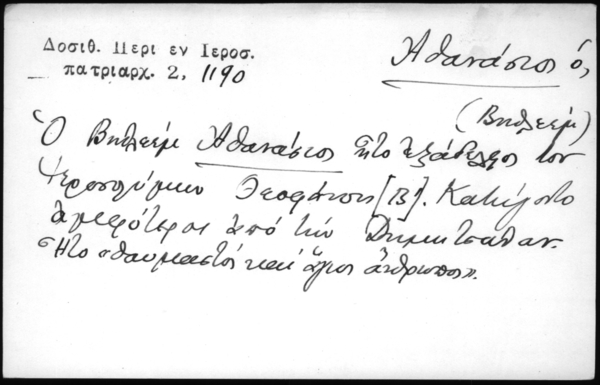 Δοσιθ. Περι εν Ιεροσ.
πατριαρχ. 2, 1190
Ἀθανάσιος ὁ,
(Βηθλεέμ)
Ὁ Βηθλεέμ Ἀθανάσιος ἦτο ἐξάδελφος τοῦ
Ἱεροσολύμων Θεοφάνους [Β']. Κατήγοντο
ἀμφότεροι ἀπό τήν Δημητσάναν.
Ἦτο «θαυμαστός καί ἅγιος ἄνθρωπος».